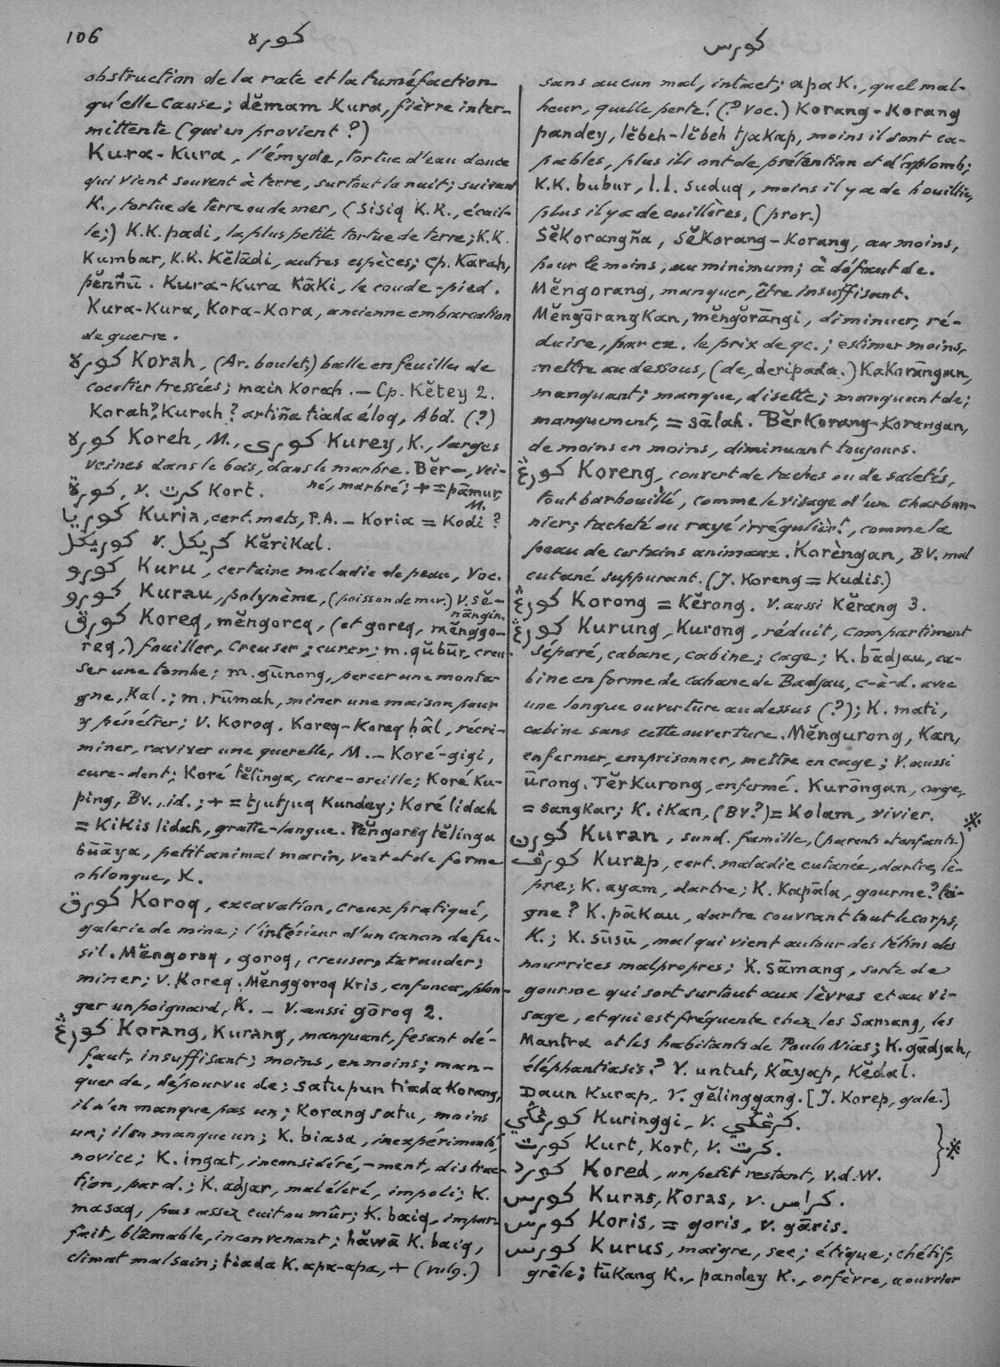 106
كوره
كورس
obstruction de la rate et la tuméfaction
qu'elle cause; dĕmam kura, fièvre inter-
mittente (qui en provient ?)
Kura-Kura, l'émyde, tortue d'eau douce
qui vient souvent à terre, surtout la nuit; suivant
K., tortue de terre ou de mer, (sisiq K.K., écail-
le;) K.K. padi, la plus petite tortue de terre; K.K.
Kumbar, K.K. Kĕlādi, autres espèces; cp. Karah,
pĕññū. Kura-Kura Kāki, le coude-pied.
Kura-Kura, Kora-Kora, ancienne embarcation
de guerre.
كوره Korah, (Ar. boulet;) balle en feuilles de
cocotier tressées; main Korah. — Cp. Kĕtey 2.
Korah? Kurah? artiña tiada éloq, Abd. (?)
كوره Koreh, M., كوري Kurey, K., larges
veines dans le bois, dans le marbre. Bĕr—, vei-
né, marbré; + = pāmur, M.
كورة, v. كرت Kort.
كوريا Kuria, cert. mets, P.A. — Koria = Kodi ?
كوريكل v. كريكل Kĕrikal.
كورو Kuru, certaine maladie de peau, Voc.
كورو Kurau, polynème, (poisson de mer.) V. sĕ-
nāngin.
كورق Koreq, mĕngoreq, (et goreq, mĕnggo-
req,) fouiller, creuser; curer; m. qūbūr, creu-
ser une tombe; m. gūnong, percer une monta-
gne, Kal.; m. rūmah, miner une maison pour
y pénétrer; V. Koroq. Koreq-Koreq hâl, récri-
miner, raviver une querelle, M. — Koré-gigi,
cure-dent; Koré tĕlinga, cure-oreille; Koré Ku-
ping, Bv., id.; + = tjutjuq Kunday; Koré lidah
= Kikis lidah, gratte-langue. Pĕngoreq tĕlinga
būāya, petit animal marin, vert et de forme
oblongue, K.
كورق Koroq, excavation, creux pratiqué,
galerie de mine; l'intérieur d'un canon de fu-
sil. Mĕngoroq, goroq, creuser, tarauder;
miner; V. Koreq. Mĕnggoroq Kris, enfoncer, plon-
ger un poignard, K. — V. aussi gōroq 2.
كورڠ Korang, Kurang, manquant, fesant dé-
faut, insuffisant; moins, en moins; man-
quer de, dépourvu de; satu pun tiada Korang,
il n'en manque pas un; Korang satu, moins
un; il en manque un; K. biasa, inexpérimenté,
novice; K. ingat, inconsidéré, -ment, distrac-
tion, par d.; K. adjar, mal élevé, impoli; K.
masaq, pas assez cuit ou mûr; K. baiq, impar-
fait, blâmable, inconvenant; hāwā K. baiq,
climat malsain; tiada K. apa-apa, + (vulg.)
sans aucun mal, intact; apa K., quel mal-
heur, quelle perte! (? Voc.) Korang-Korang
pandey, lĕbeh-lĕbeh tjakap, moins ils sont ca-
pables, plus ils ont de prétention et d'aplomb;
K.K. bubur, l.l. suduq, moins il y a de bouillie,
plus il y a de cuillères, (prov.)
Sĕkorangña, sĕkorang-Korang, au moins,
pour le moins, au minimum; à défaut de.
Mĕngorang, manquer, être insuffisant.
Mĕngōrangkan, mĕngŏrāngi, diminuer, ré-
duire, par ex. le prix de qc.; estimer moins,
mettre au dessous, (de, deripada.) Kakorāngan,
manquant; manque, disette; manquant de;
manquement, = sālah. Bĕrkorang-Korangan,
de moins en moins, diminuant toujours.
كورڠ Koreng, couvert de taches ou de saletés,
tout barbouillé, comme le visage d'un charbon-
nier; tacheté ou rayé irrégulièrt, comme la
peau de certains animaux. Korèngan, BV. mal
cutané suppurant. (J. Koreng = Kudis.)
كورڠ Korong = Kĕrong. V. aussi Kĕrang 3.
كورڠ Kurung, Kurong, réduit, compartiment
séparé, cabane, cabine; cage; K. bādjau, ca-
bine en forme de cabane de Badjau, c-à-d. avec
une longue ouverture au dessus (?); K. mati,
cabine sans cette ouverture. Mĕngurong, Kan,
enfermer, emprisonner, mettre en cage; V. aussi
ūrong. Tĕrkurong, enfermé. Kurōngan, cage,
= sangkar; K. ikan, (BV?) = Kolam, vivier.
كورن Kuran, sund. famille, (parents et enfants) ※
كورڤ Kurap, cert. maladie cutanée, dartre, lè-
pre; K. ayam, dartre; K. Kapāla, gourme? tei-
gne? K. pākau, dartre couvrant tout le corps,
K.; K. sūsū, mal qui vient autour des tétins des
nourrices malpropres; K. sāmang, sorte de
gourme qui sort surtout aux lèvres et au vi-
sage, et qui est fréquente chez les Samang, les
Mantra et les habitants de Poulo Nias; K. gādjah,
éléphantiasis? V. untut, Kāyap, Kĕdal.
Daun Kurap, V. gĕlinggang. [J. Korep, gale.]
كورڠݢي Kuringgi, v. كرڠݢي.
كورت Kurt, Kort, v. كرت. } ※
كورد Kored, un petit restant, v.d.W.
كورس Kuras, Koras, v. كراس.
كورس Koris, = goris, v. gāris.
كورس Kurus, maigre, sec; étique; chétif,
grêle; tūkang K., pandey K., orfèvre, ouvrier